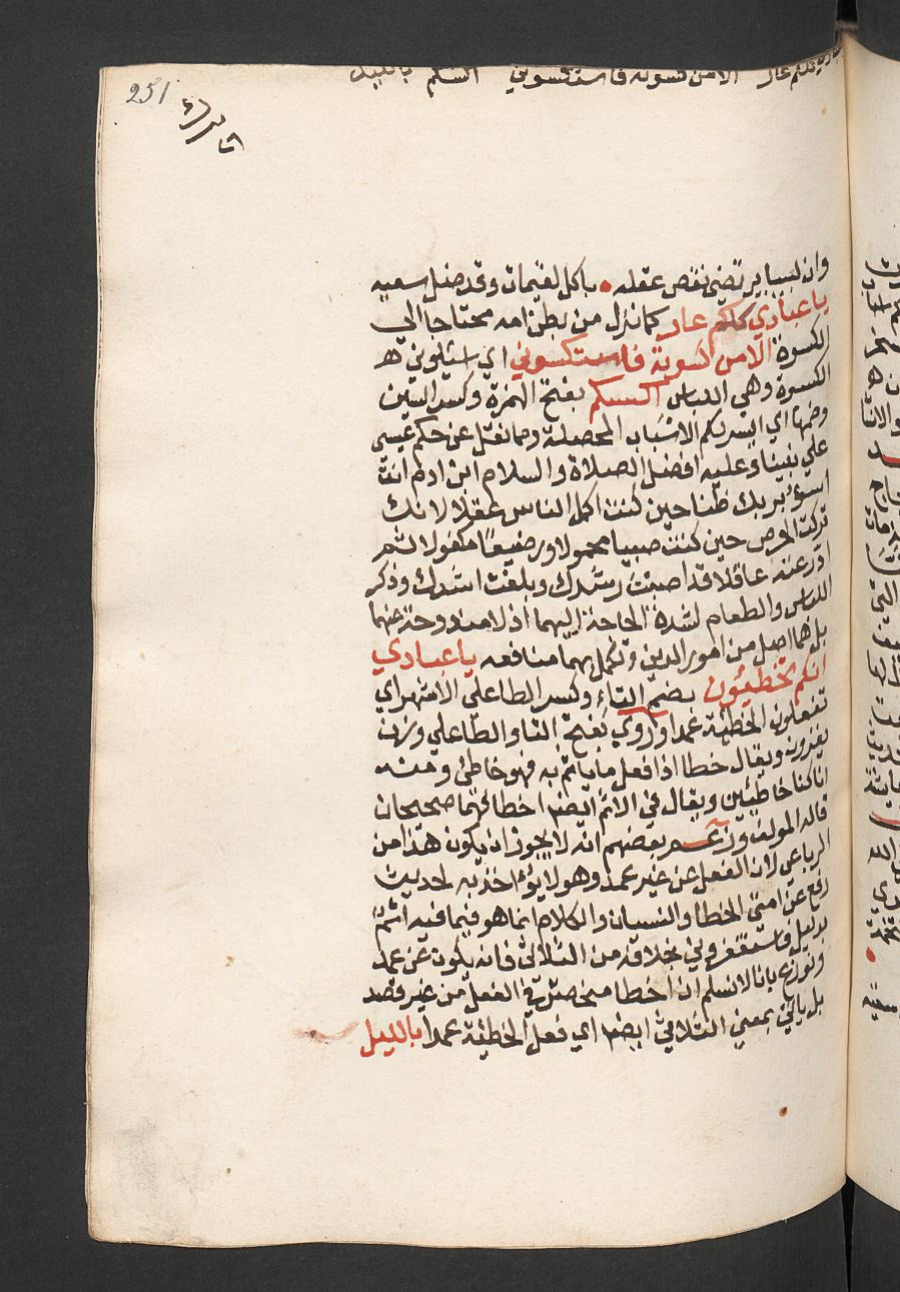 251
وان لبيبا يرتضي نقص عقله • باكل لقيمات وقد ضل سعيه
يا عبادي كلكم عار كما نزل من بطن امه محتاجا الي
الكسوة الا من كسوته فاستكسوني اي اسئلوني
الكسوة وهي اللباس اكسكم بفتح الهمزة وكسر السين
وضمها اي ايسر لكم الاسباب المحصلة ومما نقل عن حكم عيسى
علي نبينا وعليه افضل الصلاة والسلام ابن ادم انت
اسوء بربك ظنا حين كنت اكمل الناس عقلا لانك
تركت الحرص حين كنت صبيا محمولا ورضيعا مكفولا ثم
ادرعته عاقلا قد اصبت رشدك وبلغت اشدك وذكر
اللباس والطعام لشدة الحاجة اليهما اذ لا مندوحة عنهما
بل هما اصل من امور الدين وتكمل بهما منافعه يا عبادي
انكم تخطيئون بضم التاء وكسر الطا علي الاشهر اي
تفعلون الخطيئة عمدا وروي بفتح التا والطا علي وزن
يغزون ويقال خطا اذا فعل ما ياثم به فهو خاطئ ومنه
انا كنا خاطيئين ويقال في الاثم ايضا اخطا فهما صحيحان
قاله المولف وزعم بعضهم انه لا يجوز ان يكون هذا من
الرباعي لان الفعل عن غير عمد وهو لا يؤاخذ به لحديث
رفع عن امتي الخطا والنسيان والكلام انما هو فيما فيه اثم
بدليل فاستغفروني بخلافه من الثلاثي فانه يكون عن عمد
ونوزع بانا لا نسلم ان اخطا منحصر في الفعل من غير قصد
بل ياتي بمعني الثلاثي ايضا اي فعل الخطيئة عمدا بالليل